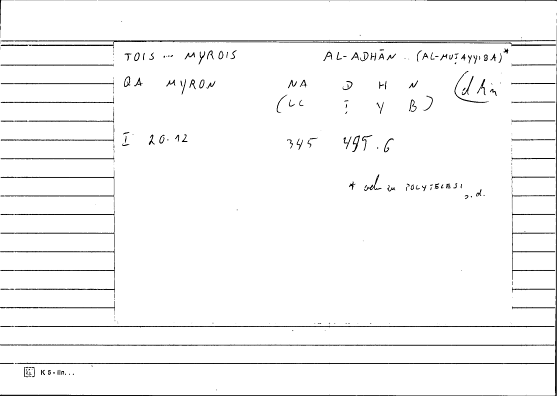 TOIS ... MYROIS AL-ADHĀN .. (AL-MUṬAYYIBA)*
QA MYRON NA D H N (dhn
(LC Ṭ Y B)
I 20.12 345 495.6
* POLYTELESI s.d.
K 5 - lin...